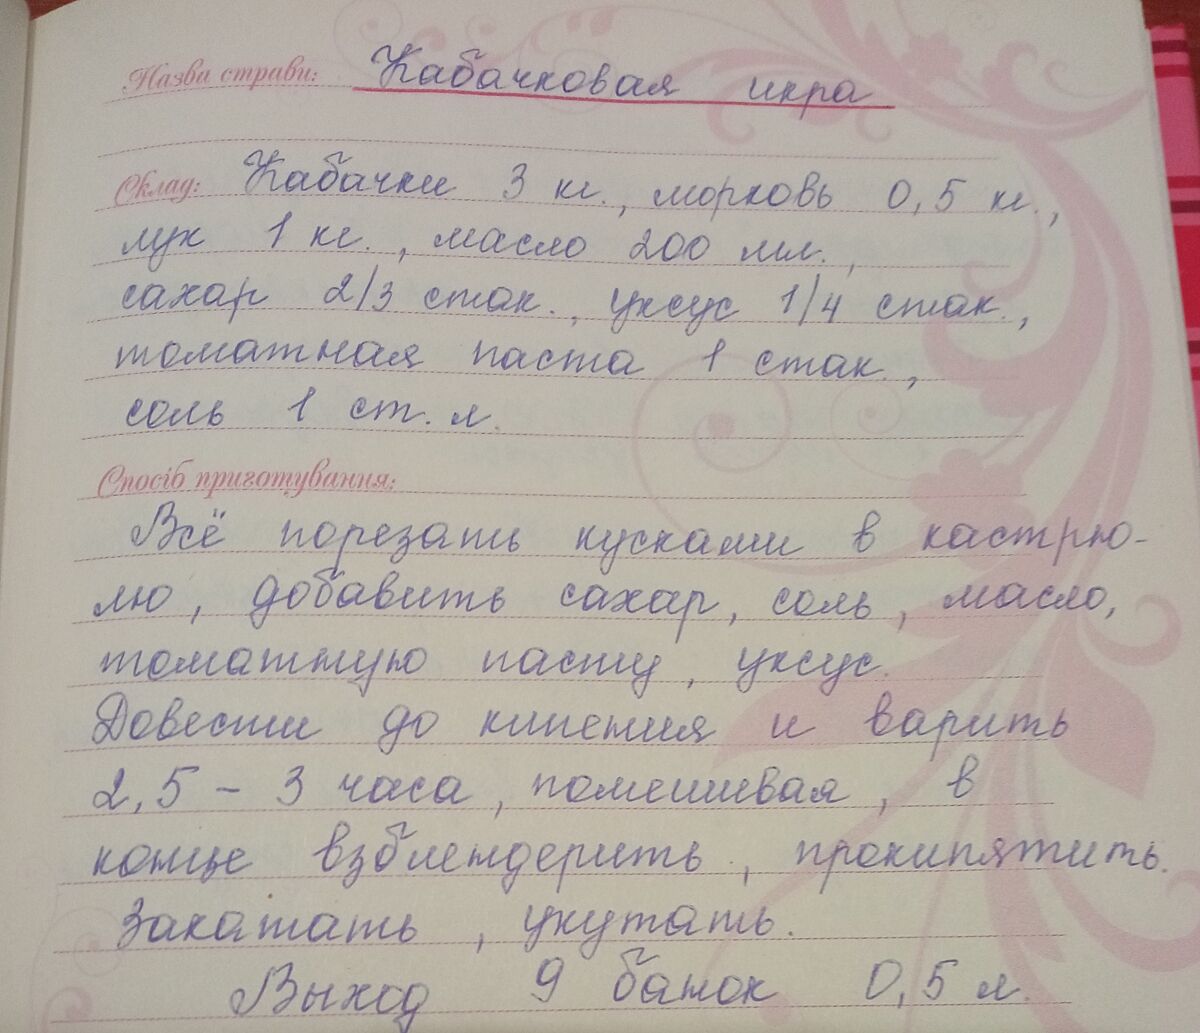 Назва страви: Кабачковая икра
Склад: Кабачки 3 кг., морковь 0,5 кг.,
лук 1 кг., масло 200 мл.,
сахар 2/3 стак., уксус 1/4 стак.,
томатная паста 1 стак.,
соль 1 ст. л.
Спосіб приготування:
Всё порезать кусками в кастрю-
лю, добавить сахар, соль, масло,
томатную пасту, уксус.
Довести до кипения и варить
2,5 – 3 часа, помешивая, в
конце взблендерить, прокипятить.
Закатать, укутать.
Выход 9 банок 0,5 л.